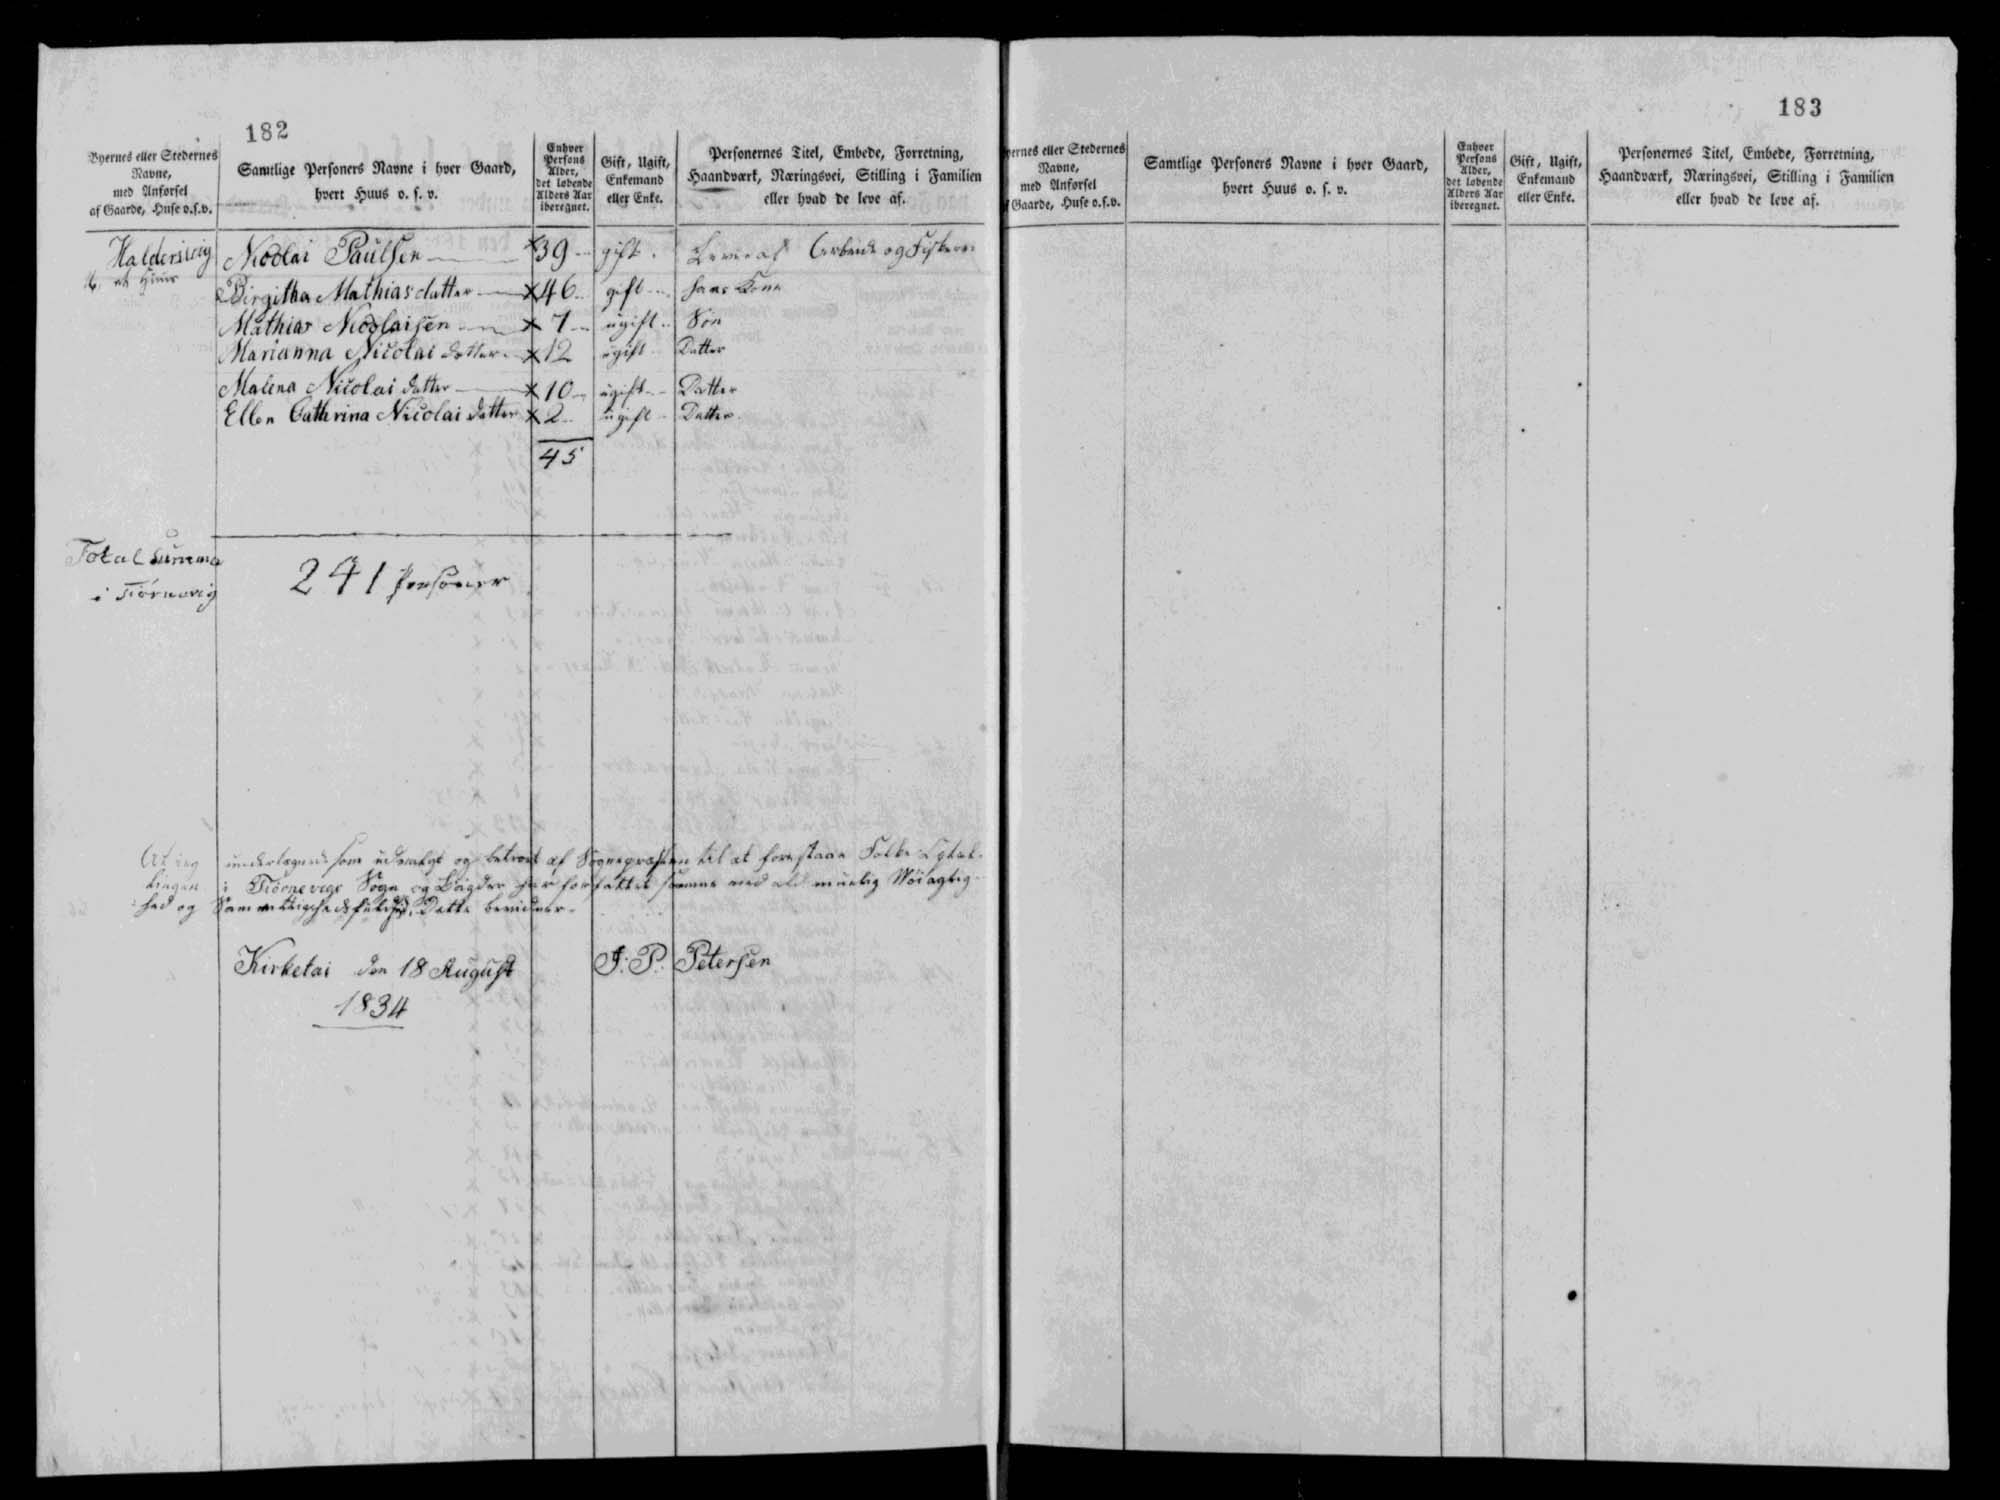 182
Byernes eller Stedernes
Navne,
med Anførsel
af Gaarde, Huse o.s.v.
Samtlige Personers Navne i hver Gaard,
hvert Huus o. s. v.
Enhver
Persons
Alder,
det løbende
Alders Aar
iberegnet.
Gift, Ugift,
Enkemand
eller Enke.
Personernes Titel, Embede, Forretning,
Haandværk, Næringsvei, Stilling i Familien
eller hvad de leve af.
Haldersvig Nicolai Paulsen x39 gift Lever af Arbeide og Fiskerie
et Huus
Birgitha Mathiasdatter x46 gift hans Kone
Mathias Nicolaisen x 7 ugift Søn
Marianna Nicolai datter x12 ugift Datter
Malena Nicolai datter x10 ugift Datter
Ellen Cathrina Nicolai datter x2 ugift Datter
45
Total Summa
i Tiørnevig
241 Personer
At jeg undertegnede som udvalgt og betroet af Sognepræsten til at forestaae Folke-Optæl-
lingen i Tiørnevigs Sogn og Bøigder har forfattet samme med all muelig Nøiagtig-
hed og Samvittighedsfuldhed, Dette bevidner
Kirketai den 18 August J: P: Petersen
1834
183
Byernes eller Stedernes
Navne,
med Anførsel
af Gaarde, Huse o.s.v.
Samtlige Personers Navne i hver Gaard,
hvert Huus o. s. v.
Enhver
Persons
Alder,
det løbende
Alders Aar
iberegnet.
Gift, Ugift,
Enkemand
eller Enke.
Personernes Titel, Embede, Forretning,
Haandværk, Næringsvei, Stilling i Familien
eller hvad de leve af.